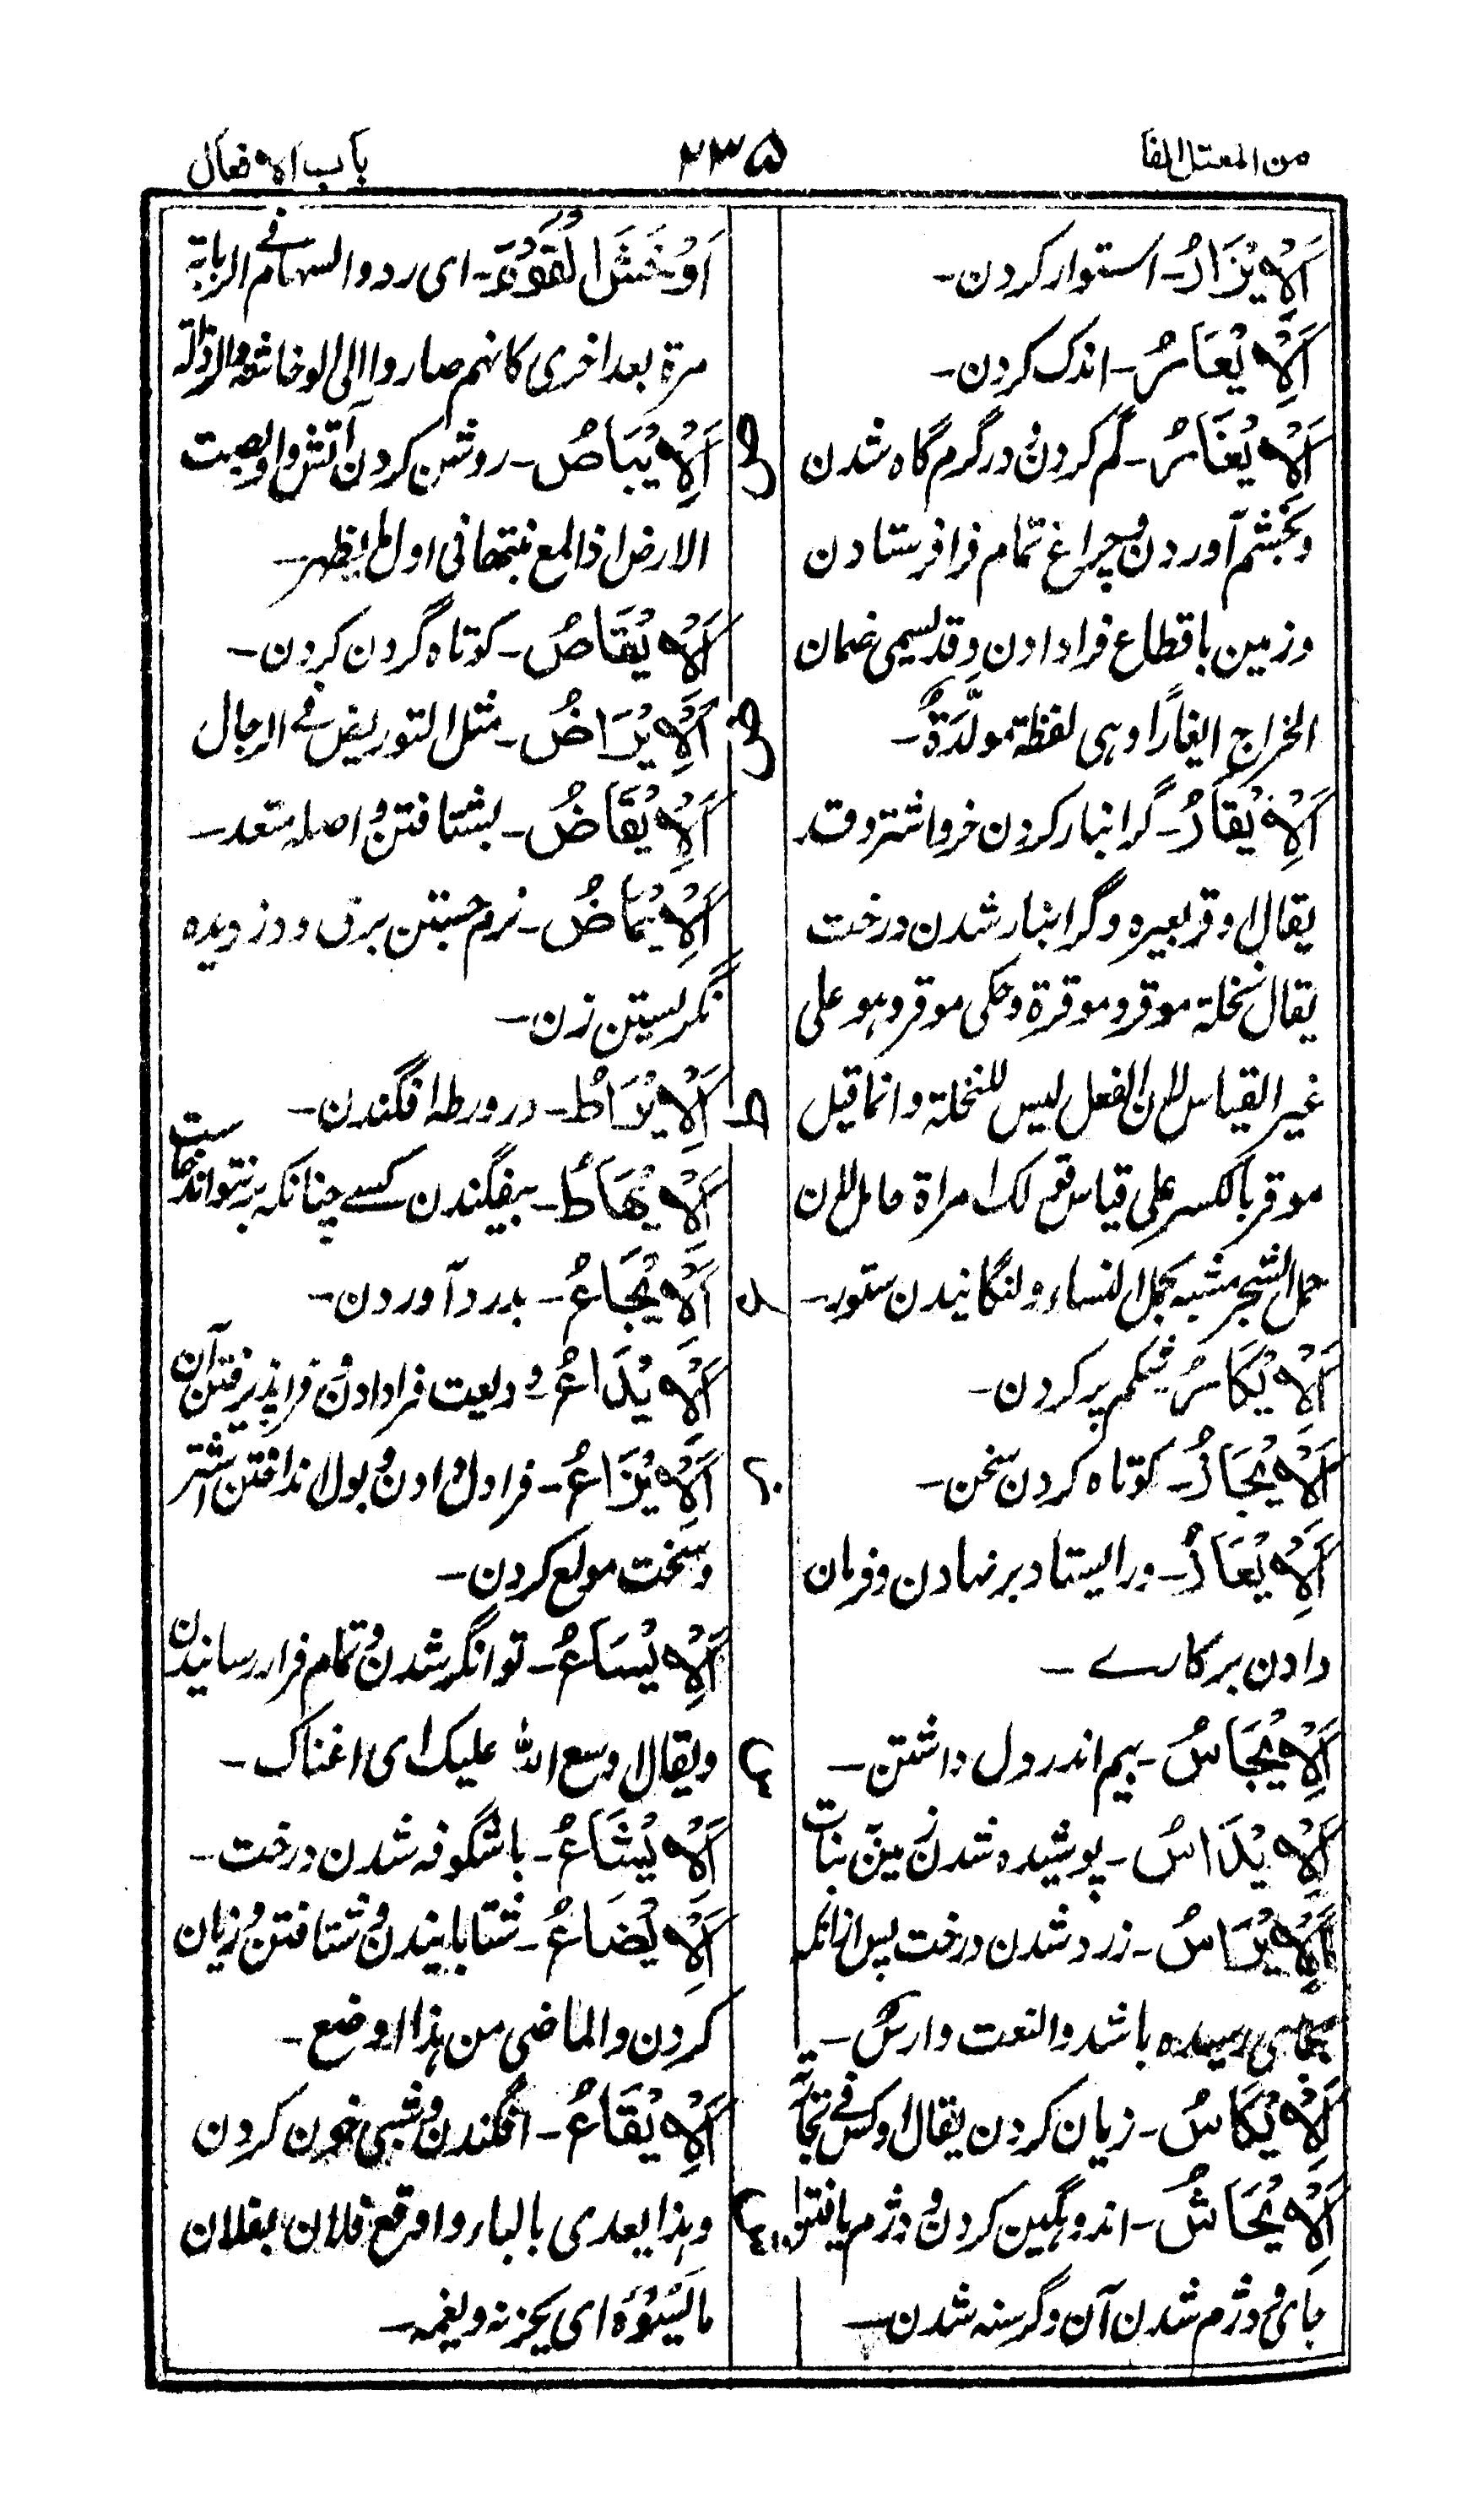 من المعتل الفا
۲۳۵
باب الافعال
اَلْاِيْزَارُ۔ استوار کردن۔
اَلْاِيْعَارُ۔ اندک کردن۔
اَلْاِيْغَارُ۔ گم کردن و در گرم گاه شدن
و بخشم آوردن و چراغ تمام فرا فرستادن
و زمین باقطاع فرا دادن وقد یسمی ضمان
الخراج ایغاراً وہی لفظۃ مولَّدَۃٌ۔
اَلْاِيْقَارُ۔ گرانبار کردن خر و اشتر وقد
یقال اوقر بعیرہ و گرانبار شدن درخت
یقال نخلۃ موقر و موقرۃ وحکی موقر وہو علی
غیر القیاس لان الفعل لیس للنخلۃ وانما قیل
موقر بالکسر علی قیاس قولک امراۃ حامل لان
حمل الشجر مشبہ بحمل النساء و لنگانیدن ستور۔
اَلْاِيْكَارُ۔ شکم پر کردن۔
اَلْاِيْجَازُ۔ کوتاہ کردن سخن۔
اَلْاِيْعَازُ۔ ورایستاد برنہادن و فرمان
دادن بر کارے۔
اَلْاِيْجَاسُ۔ بیم اندر دل داشتن۔
اَلْاِيْدَاسُ۔ پوشیدہ شدن زمین بنبات
اَلْاِيْرَاسُ۔ زرد شدن درخت پس ازانکہ
رسیدہ باشد والنعت وارسٌ۔
اَلْاِيْكَاسُ۔ زیان کردن یقال اوکس فی تجارتہ
اَلْاِيْحَاشُ۔ اندوہگین کردن و دژم یافتن
جای و دژم شدن آن و گرسنہ شدن۔
اَوْخَشَ الْقَوْمُ۔ ای ردوا السہام فی الربابۃ
مرۃ بعد اخری کانہم صاروا الی الوخاشۃ والرذالۃ
ص
اَلْاِيْبَاصُ۔ روشن کردن آتش واوبصت
الارض اذا لمع نبتھا فی اول ما یظہر۔
اَلْاِيْقَاصُ۔ کوتاہ گردن کردن۔
ض
اَلْاِيْرَاضُ۔ مثل التوریض فی الرجال
اَلْاِيْفَاضُ۔ بشتافتن و اصلہ متعد۔
اَلْاِيْمَاضُ۔ نرم جستن برق و دزدیدہ
نگریستن زن۔
ط
اَلْاِيْرَاطُ۔ در ورطہ افگندن۔
اَلْاِيْهَاطُ۔ بیفگندن کسے چنانکہ برنتواند خاست
اَلْاِيْجَاعُ۔ بدرد آوردن۔
اَلْاِيْدَاعُ۔ ودیعت فرا دادن و فرا پذیرفتن آن
اَلْاِيْزَاعُ۔ فرا دل دادن و بول انداختن اشتر
و سخت مولع کردن۔
اَلْاِيْسَاعُ۔ توانگر شدن و تمام فرا رسانیدن
ویقال اوسع اللہ علیک ای اغناک۔
اَلْاِيْشَاعُ۔ باشگوفہ شدن درخت۔
اَلْاِيْضَاعُ۔ شتابانیدن و شتافتن و زیان
کردن والماضی من ہذا اوضع۔
اَلْاِيْقَاعُ۔ افگندن و شبی خون کردن
وہذا یعدی بالباء واوقع فلان بفلان
ما یَسُوْءُہٗ ای یحزنہ ویغمہ۔